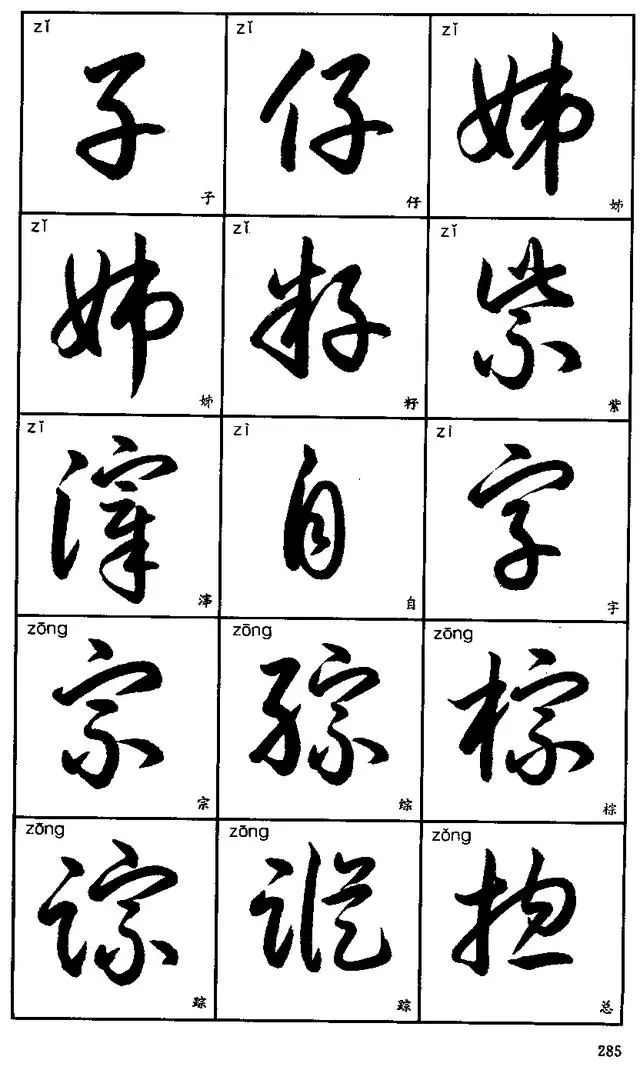 zǐ zǐ zǐ
子 仔 姊
子 仔 姊
zǐ zǐ zǐ
姊 籽 紫
姊 籽 紫
zǐ zì zì
滓 自 字
滓 自 字
zōng zōng zōng
宗 综 棕
宗 综 棕
zōng zōng zǒng
踪 踪 总
踪 踪 总
285